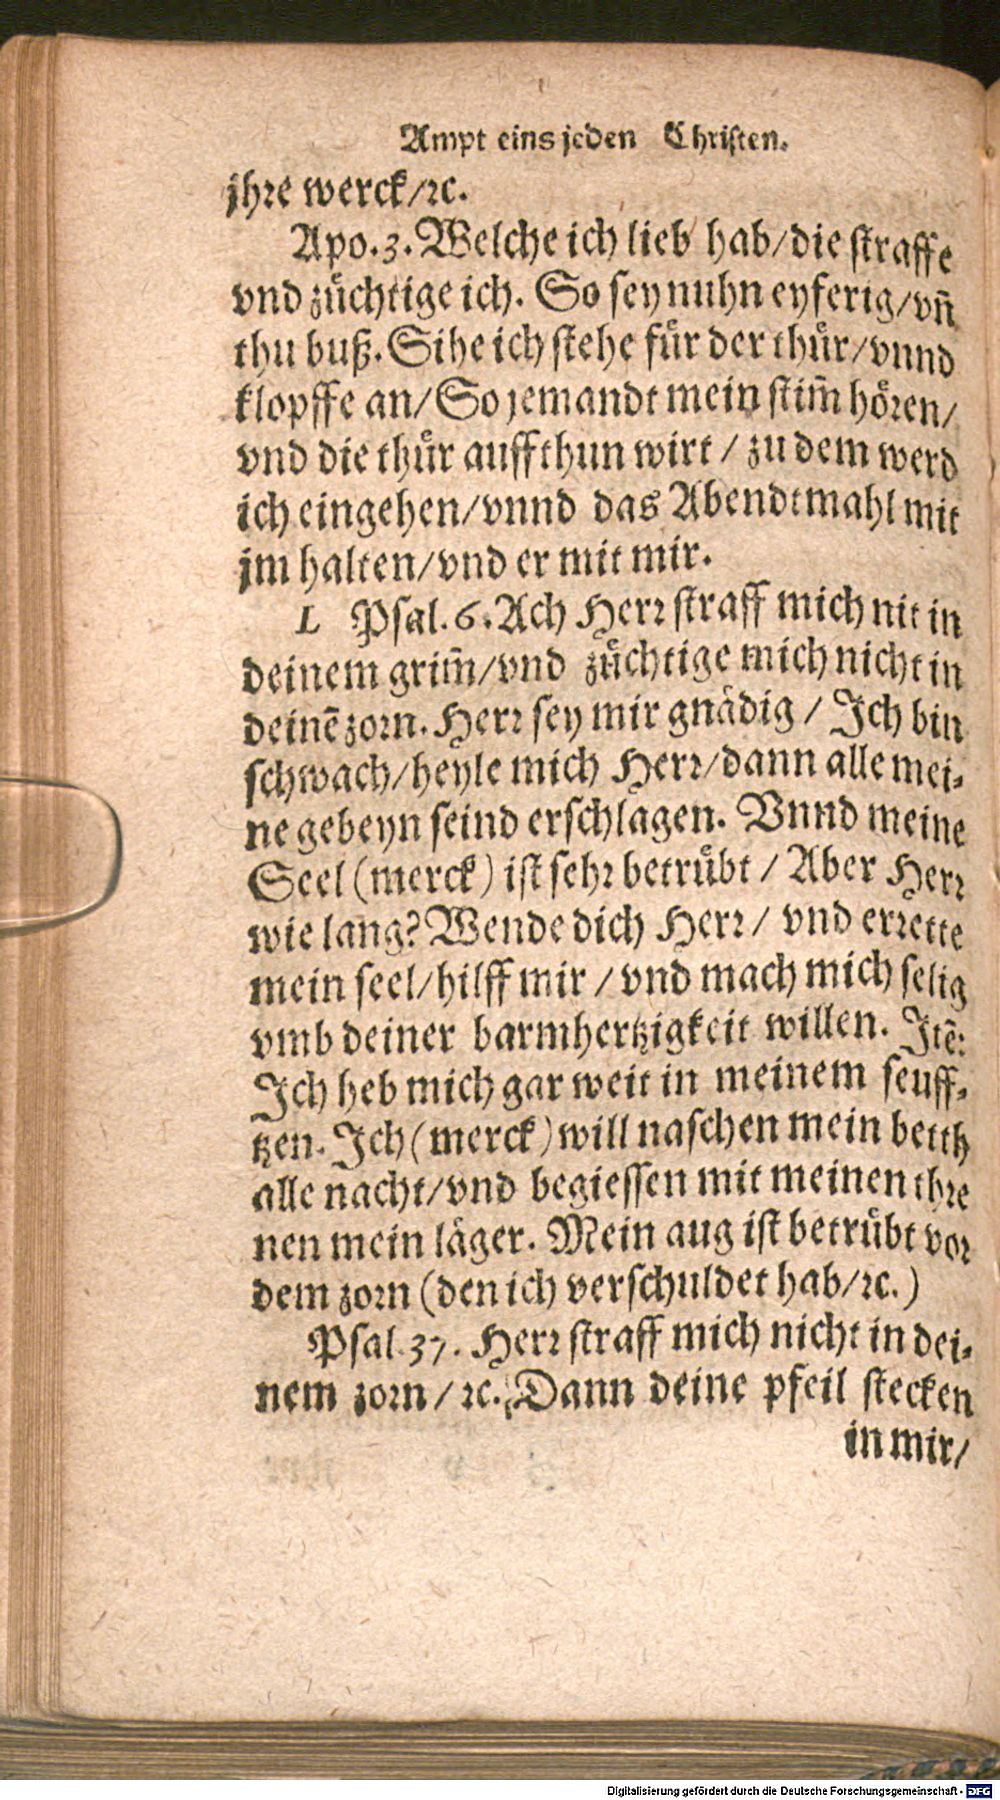 Ampt eins jeden Christen.
jhre werck/ꝛc.
Apo.3. Welche ich lieb hab/die straffe
vnd zuͤchtige ich. So sey nuhn eyferig/vn̄
thu buß. Sihe ich stehe fuͤr der thuͤr/vnnd
klopffe an/So jemandt mein stim̄ hoͤren/
vnd die thuͤr auffthun wirt / zu dem werd
ich eingehen/vnnd das Abendtmahl mit
jm halten/vnd er mit mir.
L Psal.6. Ach Herr straff mich nit in
deinem grim̄/vnd zuͤchtige mich nicht in
deinē zorn. Herr sey mir gnaͤdig / Ich bin
schwach/heyle mich Herr/dann alle mei-
ne gebeyn seind erschlagen. Vnnd meine
Seel (merck) ist sehr betruͤbt / Aber Herr
wie lang? Wende dich Herr/ vnd errette
mein seel/hilff mir / vnd mach mich selig
vmb deiner barmhertzigkeit willen. Itē:
Ich heb mich gar weit in meinem seuff-
tzen. Ich (merck) will naschen mein betth
alle nacht/vnd begiessen mit meinen thre
nen mein laͤger. Mein aug ist betruͤbt vor
dem zorn (den ich verschuldet hab/ꝛc.)
Psal.37. Herr straff mich nicht in dei-
nem zorn/ ꝛc. Dann deine pfeil stecken
in mir/
Digitalisierung gefördert durch die Deutsche Forschungsgemeinschaft - DFG